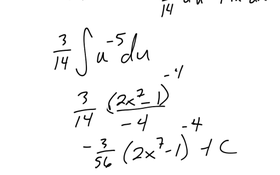 3/14 ∫ u^-5 du
3/14 (2x^7-1)^-4 / -4
-3/56 (2x^7-1)^-4 + C